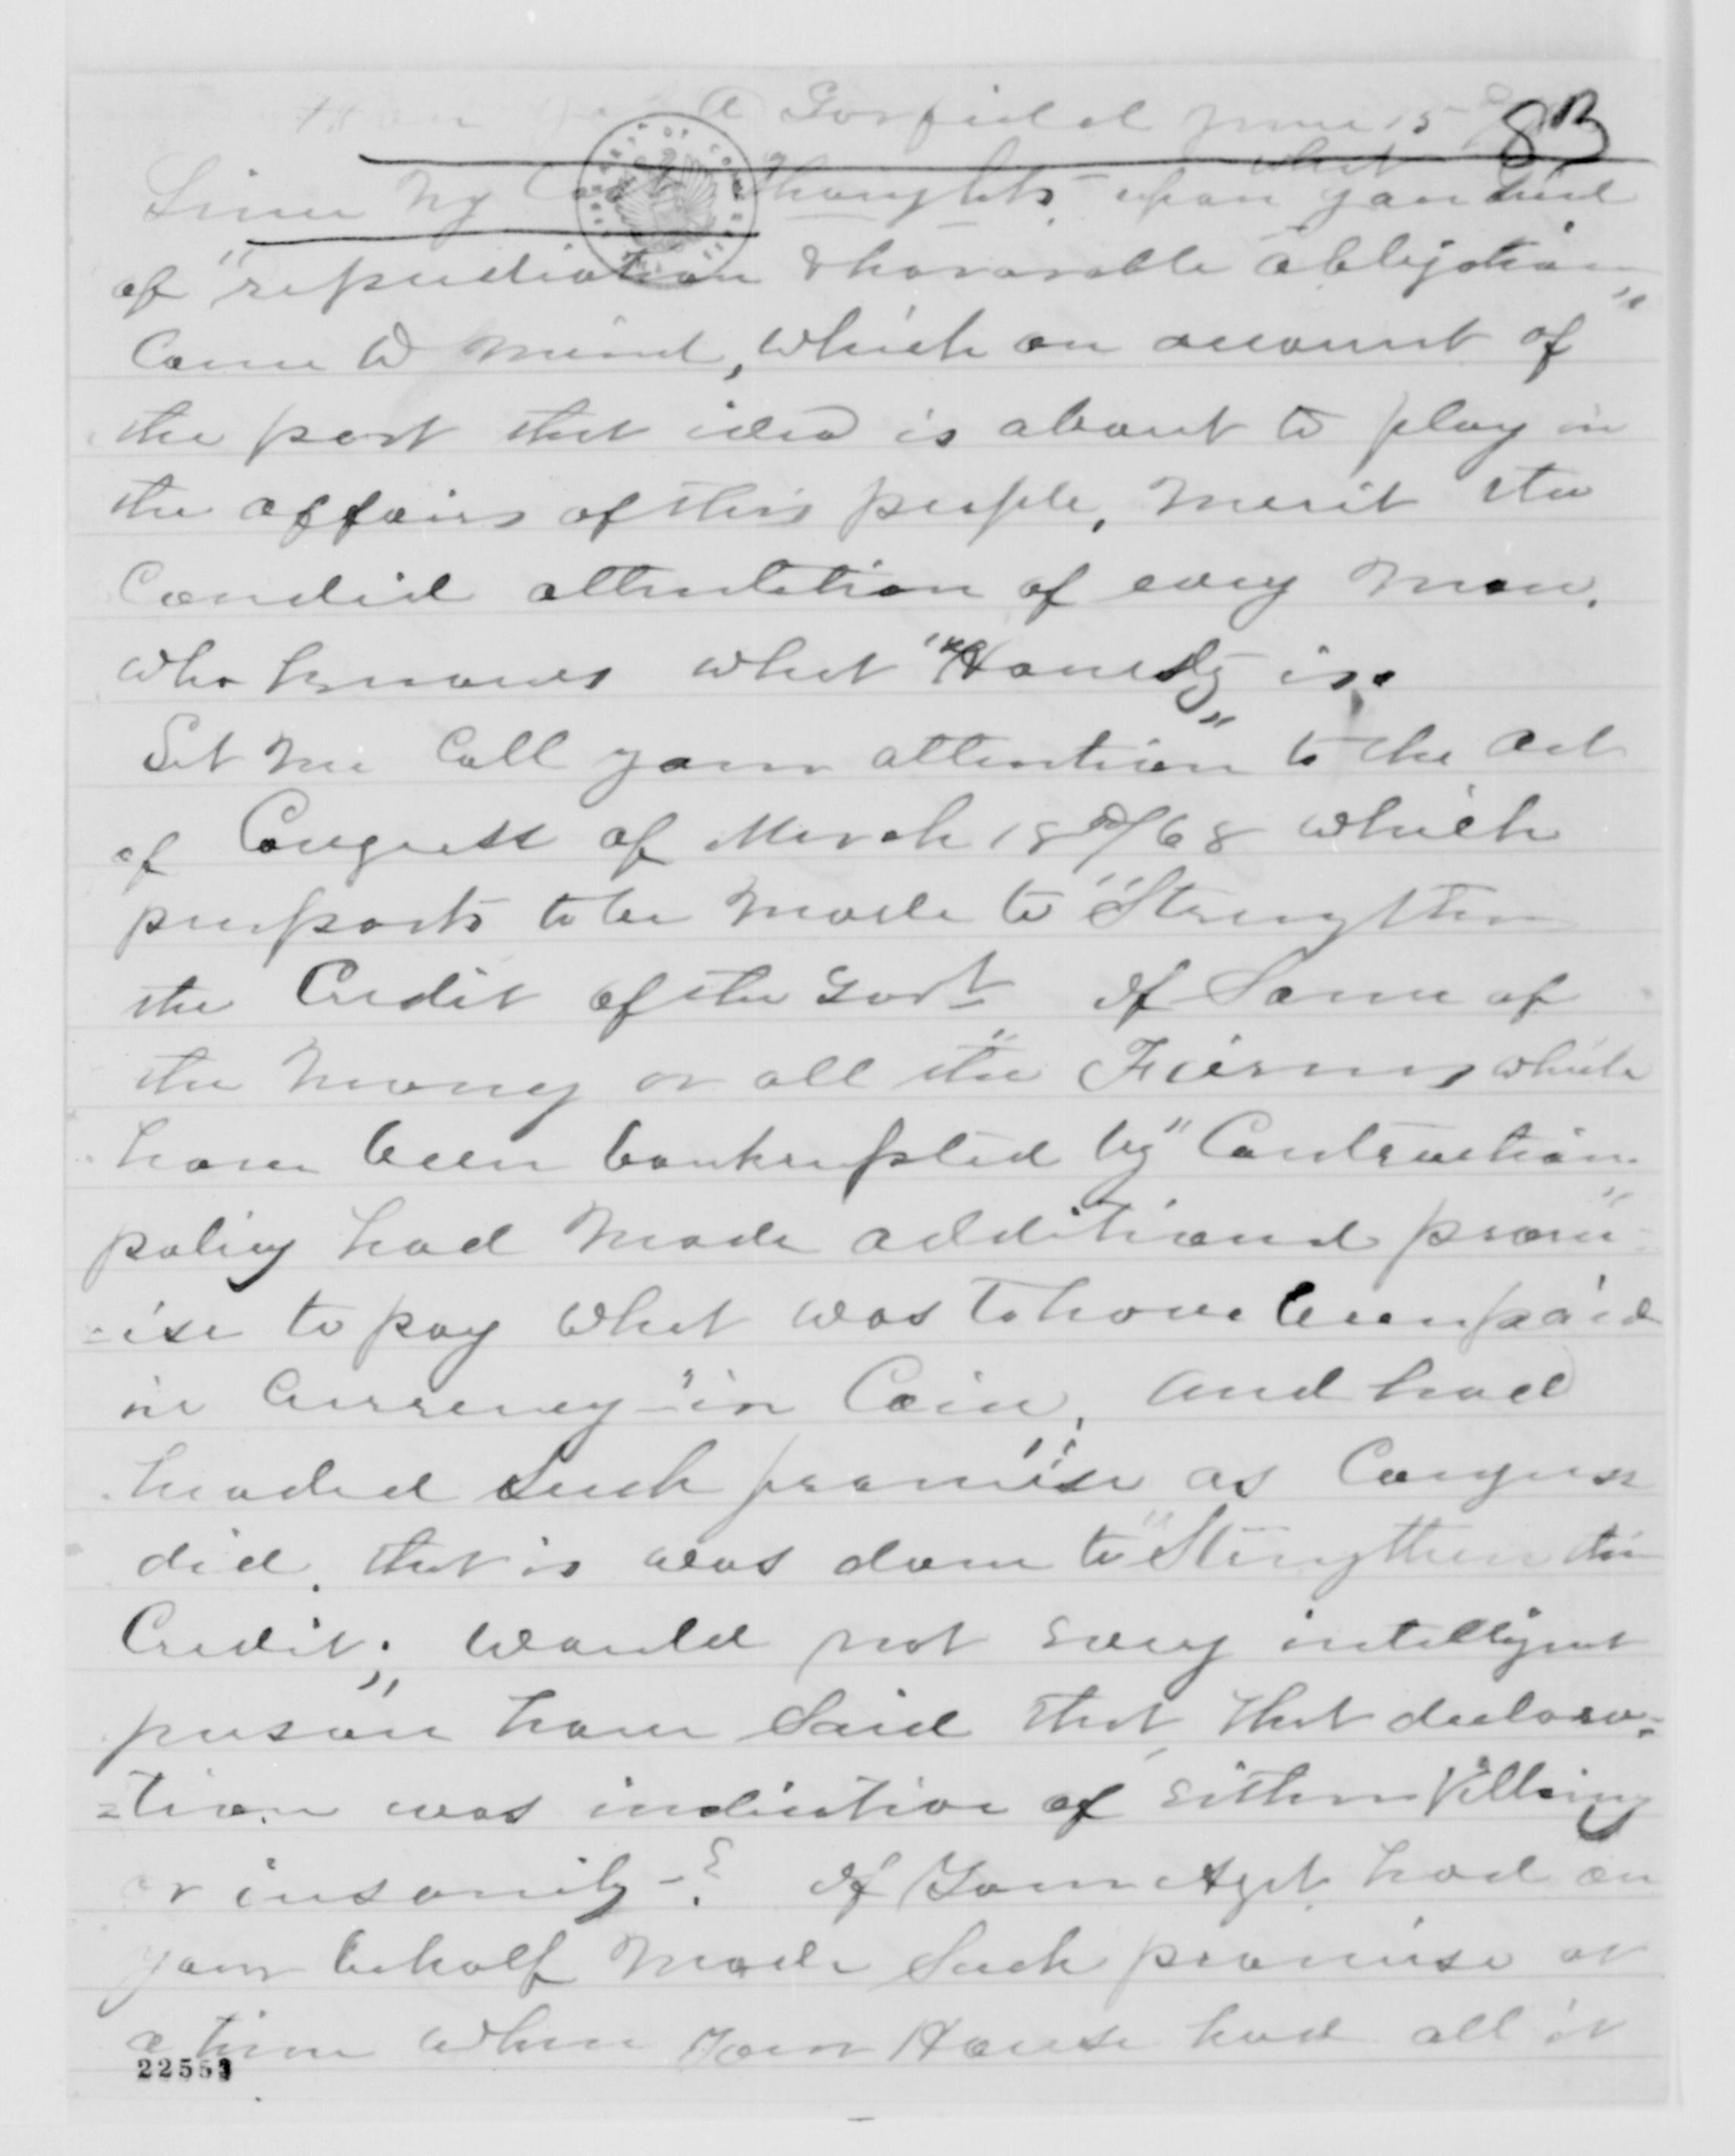 A Garfield June 15
83
Since my thoughts upon what you said
of "repudiation & honorable obligation"
Came to mind, which on account of
the part that idea is about to play in
the affairs of this people, merit the
Candid attentation of every man,
who knows what "Honesty" is.
Let me Call your attention to the act
of Congress of March 18th/68 which
purports to be made to "Strengthen
the Credit of the Govt" If Some of
the many or all the Firms which
have been bankrupted by "Contraction
policy" had made additional prom
-ise to pay what was to have been paid
in Currency "in Coin, and had
headed Such promise as Congress
did, that is was done to "Strengthen the
Credit"; would not every intelligent
person have Said that that declara-
-tion was indicative of either Villainy
or insanity-? If Your Agt had on
your behalf made Such promise at
a time when Your House had all it
22553